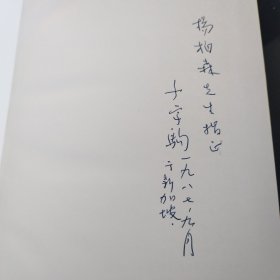 楊柏森先生指正
一九八七、九月
于新加坡.